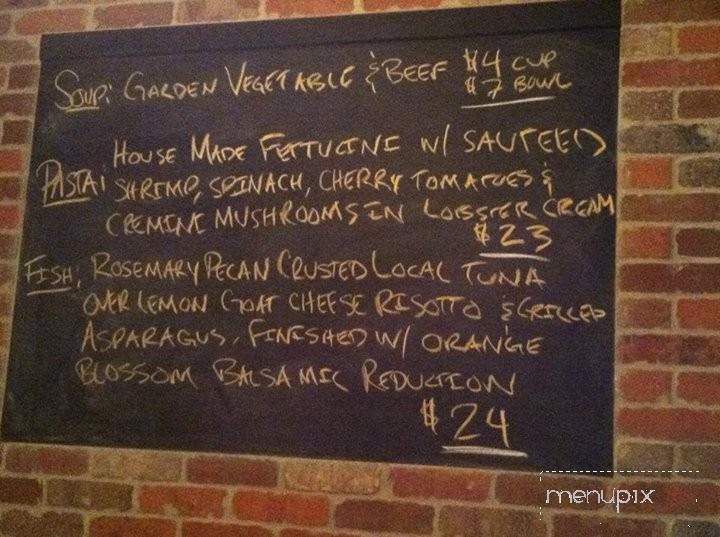 SOUP: GARDEN VEGETABLE & BEEF $4 CUP
$7 BOWL
HOUSE MADE FETTUCINI W/ SAUTEED
PASTA: SHRIMP, SPINACH, CHERRY TOMATOES &
CREMINI MUSHROOMS IN LOBSTER CREAM
$23
FISH: ROSEMARY PECAN CRUSTED LOCAL TUNA
OVER LEMON GOAT CHEESE RISOTTO & GRILLED
ASPARAGUS. FINISHED W/ ORANGE
BLOSSOM BALSAMIC REDUCTION
$24
menupix